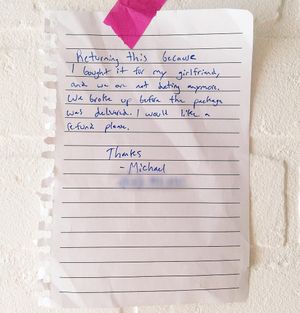 Returning this because
I bought it for my girlfriend,
and we are not dating anymore.
We broke up before the package
was delivered. I would like a
refund please.
Thanks
- Michael